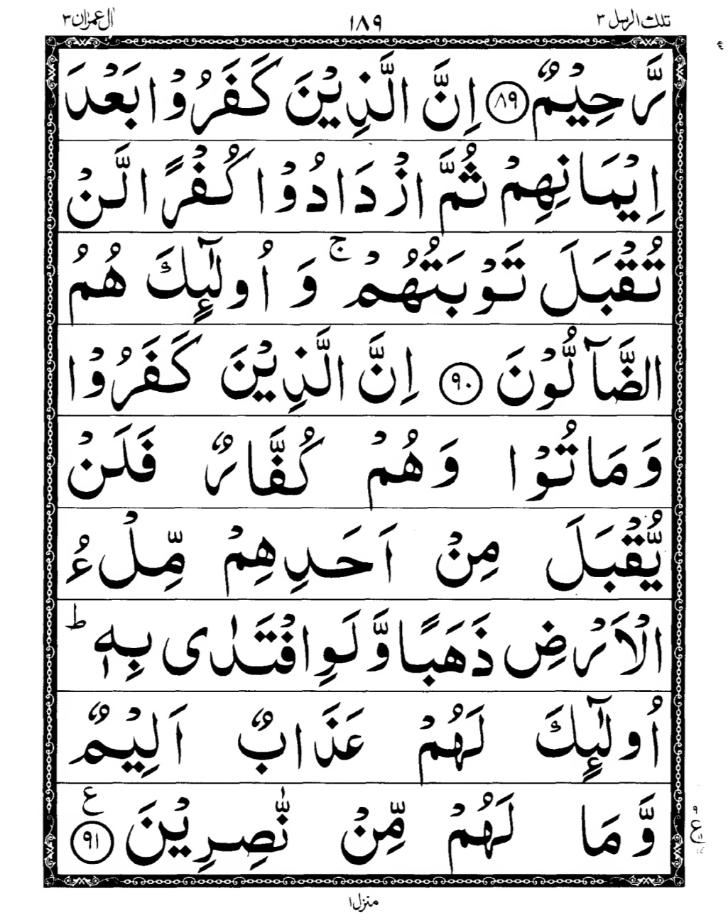 تلك الرسل ٣ ١٨٩ اٰل عمرٰن ٣
رَّحِيْمٌ ﴿٨٩﴾ اِنَّ الَّذِيْنَ كَفَرُوْا بَعْدَ
اِيْمَانِهِمْ ثُمَّ ازْدَادُوْا كُفْرًا لَّنْ
تُقْبَلَ تَوْبَتُهُمْ ۚ وَ اُولٰٓئِكَ هُمُ
الضَّآلُّوْنَ ﴿٩٠﴾ اِنَّ الَّذِيْنَ كَفَرُوْا
وَمَاتُوْا وَهُمْ كُفَّارٌ فَلَنْ
يُّقْبَلَ مِنْ اَحَدِهِمْ مِّلْءُ
الْاَرْضِ ذَهَبًا وَّلَوِ افْتَدٰى بِهٖ ؕ
اُولٰٓئِكَ لَهُمْ عَذَابٌ اَلِيْمٌ
وَّمَا لَهُمْ مِّنْ نّٰصِرِيْنَ ﴿٩١﴾ ع
منزل ١